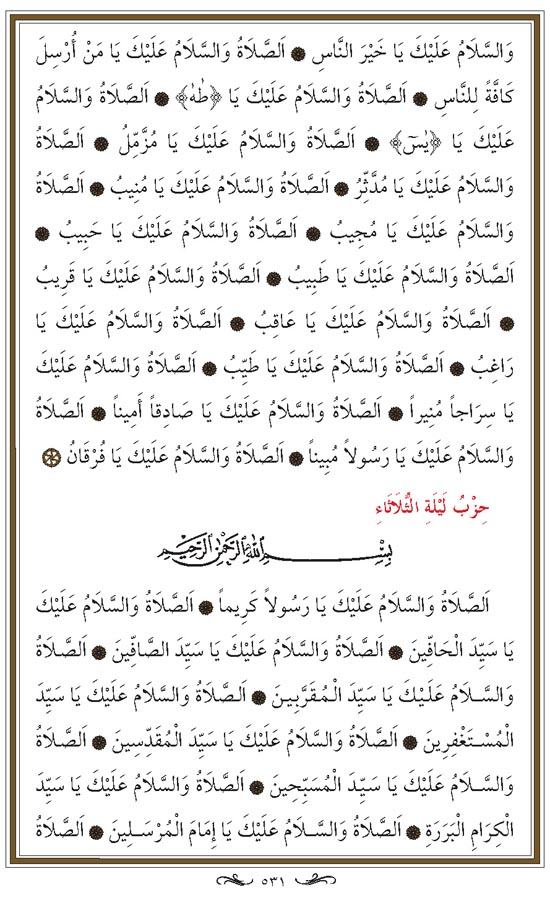 وَالسَّلَامُ عَلَيْكَ يَا خَيْرَ النَّاسِ ۞ اَلصَّلَاةُ وَالسَّلَامُ عَلَيْكَ يَا مَنْ أُرْسِلَ
كَافَّةً لِلنَّاسِ ۞ اَلصَّلَاةُ وَالسَّلَامُ عَلَيْكَ يَا ﴿طٰهٰ﴾ ۞ اَلصَّلَاةُ وَالسَّلَامُ
عَلَيْكَ يَا ﴿يٰسٓ﴾ ۞ اَلصَّلَاةُ وَالسَّلَامُ عَلَيْكَ يَا مُزَّمِّلُ ۞ اَلصَّلَاةُ
وَالسَّلَامُ عَلَيْكَ يَا مُدَّثِّرُ ۞ اَلصَّلَاةُ وَالسَّلَامُ عَلَيْكَ يَا مُنِيبُ ۞ اَلصَّلَاةُ
وَالسَّلَامُ عَلَيْكَ يَا مُجِيبُ ۞ اَلصَّلَاةُ وَالسَّلَامُ عَلَيْكَ يَا حَبِيبُ ۞
اَلصَّلَاةُ وَالسَّلَامُ عَلَيْكَ يَا طَبِيبُ ۞ اَلصَّلَاةُ وَالسَّلَامُ عَلَيْكَ يَا قَرِيبُ
۞ اَلصَّلَاةُ وَالسَّلَامُ عَلَيْكَ يَا عَاقِبُ ۞ اَلصَّلَاةُ وَالسَّلَامُ عَلَيْكَ يَا
رَاغِبُ ۞ اَلصَّلَاةُ وَالسَّلَامُ عَلَيْكَ يَا طَيِّبُ ۞ اَلصَّلَاةُ وَالسَّلَامُ عَلَيْكَ
يَا سِرَاجاً مُنِيراً ۞ اَلصَّلَاةُ وَالسَّلَامُ عَلَيْكَ يَا صَادِقاً أَمِيناً ۞ اَلصَّلَاةُ
وَالسَّلَامُ عَلَيْكَ يَا رَسُولاً مُبِيناً ۞ اَلصَّلَاةُ وَالسَّلَامُ عَلَيْكَ يَا فُرْقَانُ ۞
حِزْبُ لَيْلَةِ الثُّلَاثَاءِ
بِسْمِ اللهِ الرَّحْمٰنِ الرَّحِيمِ
اَلصَّلَاةُ وَالسَّلَامُ عَلَيْكَ يَا رَسُولاً كَرِيماً ۞ اَلصَّلَاةُ وَالسَّلَامُ عَلَيْكَ
يَا سَيِّدَ الْحَافِّينَ ۞ اَلصَّلَاةُ وَالسَّلَامُ عَلَيْكَ يَا سَيِّدَ الصَّافِّينَ ۞ اَلصَّلَاةُ
وَالسَّلَامُ عَلَيْكَ يَا سَيِّدَ الْمُقَرَّبِينَ ۞ اَلصَّلَاةُ وَالسَّلَامُ عَلَيْكَ يَا سَيِّدَ
الْمُسْتَغْفِرِينَ ۞ اَلصَّلَاةُ وَالسَّلَامُ عَلَيْكَ يَا سَيِّدَ الْمُقَدِّسِينَ ۞ اَلصَّلَاةُ
وَالسَّلَامُ عَلَيْكَ يَا سَيِّدَ الْمُسَبِّحِينَ ۞ اَلصَّلَاةُ وَالسَّلَامُ عَلَيْكَ يَا سَيِّدَ
الْكِرَامِ الْبَرَرَةِ ۞ اَلصَّلَاةُ وَالسَّلَامُ عَلَيْكَ يَا إِمَامَ الْمُرْسَلِينَ ۞ اَلصَّلَاةُ
٥٣١